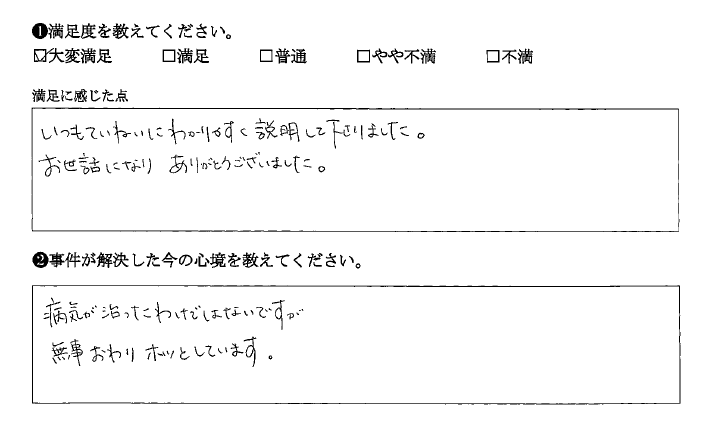 ❶満足度を教えてください。
☑大変満足 □満足 □普通 □やや不満 □不満
満足に感じた点
いつもていねいにわかりやすく説明して下さりました。
お世話になり ありがとうございました。
❷事件が解決した今の心境を教えてください。
病気が治ったわけではないですが
無事おわりホッとしています。